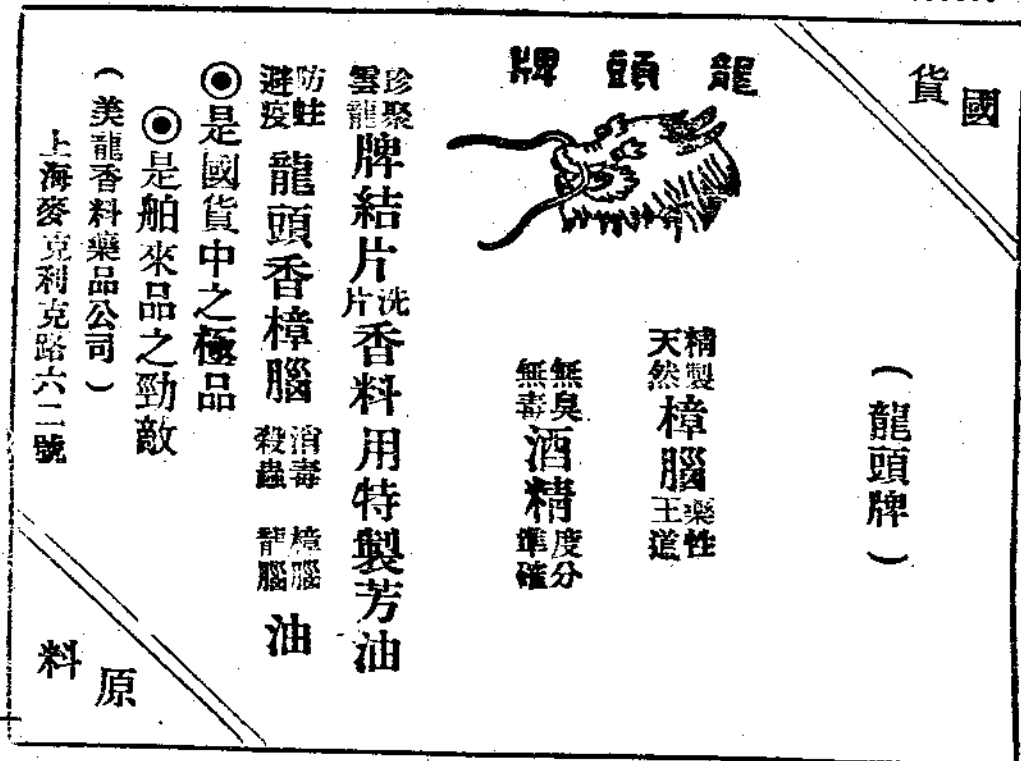 國貨
龍頭牌
(龍頭牌)
精製天然樟腦藥性王道
無臭無毒酒精度分準確
珍聚雲龍牌結片洗片香料用特製芳油
防蛀避疫龍頭香樟腦消毒殺蟲樟腦龍腦油
◉是國貨中之極品
◉是舶來品之勁敵
(美龍香料藥品公司)
上海麥克利克路六二號
原料